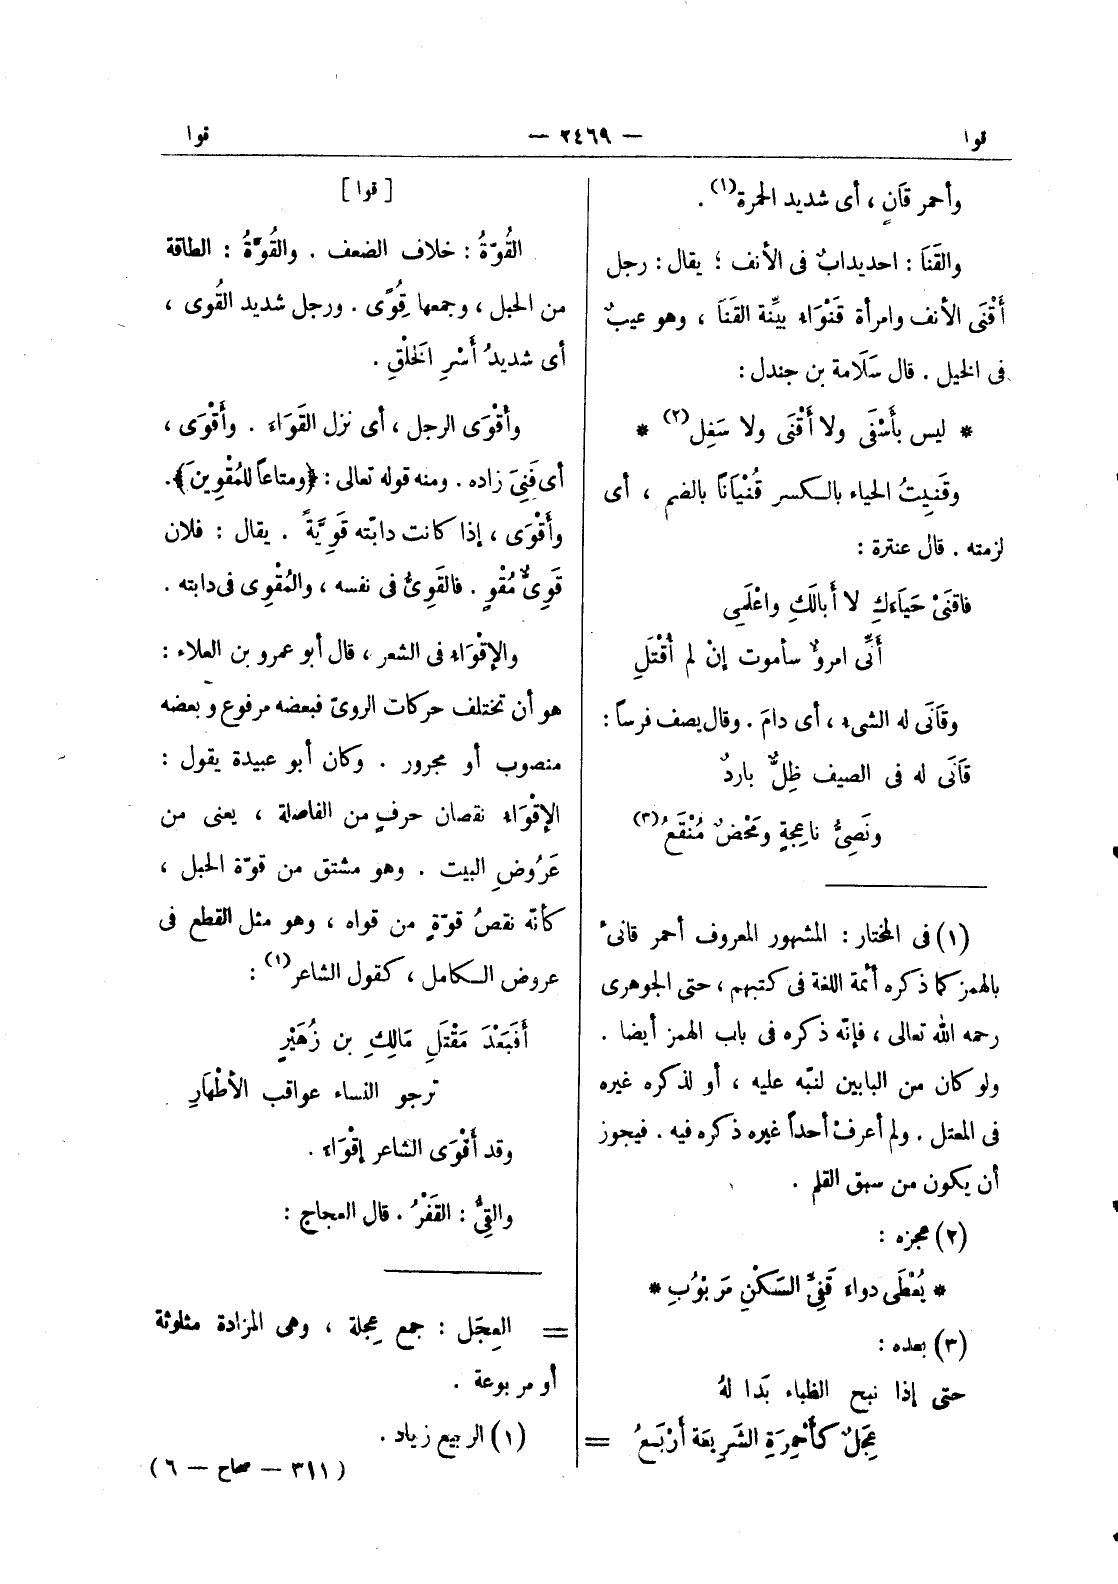 قوا
— ٢٤٦٩ —
قوا
وأحمر قَانٍ ، أى شديد الحمرة(١) .
والقَنَا : احديدابٌ فى الأنف ؛ يقال : رجل
أَقْنَى الأنف وامرأة قَنْوَاء بيِّنة القَنَا ، وهو عيبٌ
فى الخيل . قال سَلَامة بن جندل :
* ليس بأَسْفَى ولا أَقْنَى ولا سَغِل(٢) *
وقَنِيتُ الحياء بالكسر قُنْيَاناً بالضم ، أى
لزمته . قال عنترة :
فاقنَىْ حَيَاءَكِ لا أَبالَكِ واعْلَمِى
أَنِّى امروٌ سأموت إنْ لم أُقْتَلِ
وقَانَى له الشىء ، أى دامَ . وقال يصف فرساً :
قَانَى له فى الصيف ظِلٌّ باردٌ
ونَصِىُّ ناعِجةٍ ومَحْضٌ مُنْقَعُ(٣)
(١) فى المختار : المشهور المعروف أحمر قانىٌ
بالهمز كما ذكره أئمة اللغة فى كتبهم ، حتى الجوهرى
رحمه الله تعالى ، فإنّه ذكره فى باب الهمز أيضا .
ولو كان من البابين لنبّه عليه ، أو لذكره غيره
فى المعتل . ولم أعرفْ أحداً غيره ذكره فيه . فيجوز
أن يكون من سبق القلم .
(٢) عجزه :
* يُعْطَى دواء قَفِىِّ السَكْنِ مَرْبُوُبِ *
(٣) بعده :
حتى إذا نبح الظباء بَدا لهُ
عِجَلٌ كأَحْمِرَةِ الشَرِيعَة أَرْبَعُ =
[ قوا ]
القُوّةُ : خلاف الضعف . والقُوَّةُ : الطاقة
من الحبل ، وجمعها قُِوًى . ورجل شديد القُوى ،
أى شديدُ أَسْرِ الخَلْقِ .
وأقْوَى الرجل ، أى نزل القَوَاء . وأَقْوَى ،
أى فَنِىَ زاده . ومنه قوله تعالى : ﴿ومتاعاً للمُقْوِينَ﴾ .
وأَقْوَى ، إذا كانت دابّته قَوِيَّةً . يقال : فلان
قَوِىٌّ مُقْوٍ . فالقَوِىُّ فى نفسه ، والمُقْوِى فى دابته .
والإقْوَاء فى الشعر ، قال أبو عمرو بن العلاء :
هو أن تختلف حركات الروىّ فبعضه مرفوع وبعضه
منصوب أو مجرور . وكان أبو عبيدة يقول :
الإقْوَاء نقصان حرفٍ من الفاصلة ، يعنى من
عَرُوضِ البيت . وهو مشتق من قوّة الحبل ،
كأنّه نقصُ قوّةٍ من قواه ، وهو مثل القطع فى
عروض الكامل ، كقول الشاعر(١) :
أَفَبَعْدَ مَقْتَلِ مَالِكِ بن زُهَيْرٍ
ترجو النساء عواقب الأطْهَارِ
وقد أَقْوَى الشاعر إقْوَاء .
والقِىُّ : القَفْرُ . قال العجاج :
= العِجَل : جمع عِجلة ، وهى المزادة مثلوثة
أو مربوعة .
(١) الربيع زياد .
( ٣١١ — صحاح — ٦ )